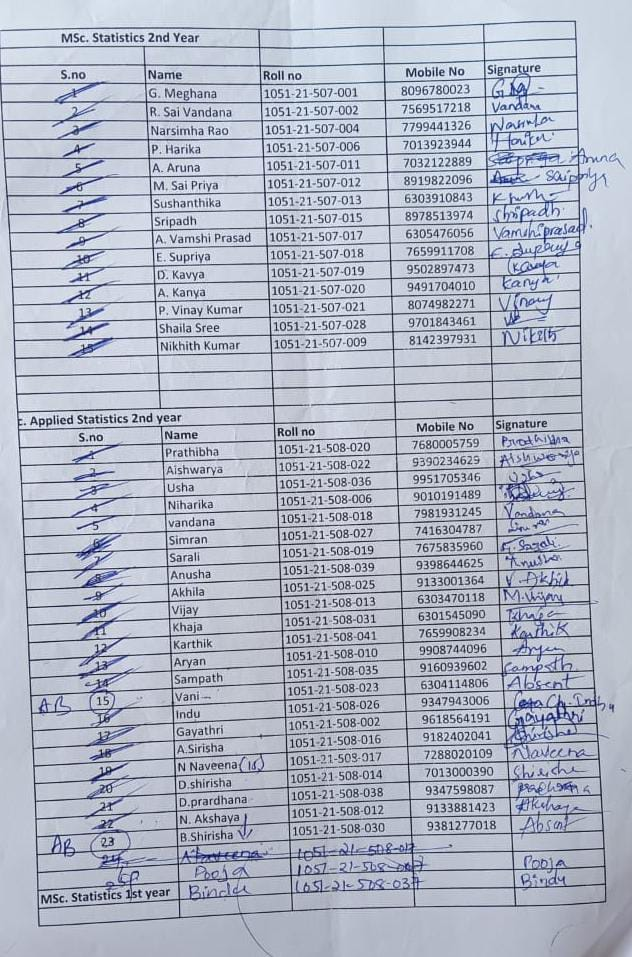 MSc. Statistics 2nd Year
S.no Name Roll no Mobile No Signature
1 G. Meghana 1051-21-507-001 8096780023
2 R. Sai Vandana 1051-21-507-002 7569517218 Vandana
3 Narsimha Rao 1051-21-507-004 7799441326 Narsimha
4 P. Harika 1051-21-507-006 7013923944 Harika
5 A. Aruna 1051-21-507-011 7032122889 Aruna
6 M. Sai Priya 1051-21-507-012 8919822096 Saipriya
7 Sushanthika 1051-21-507-013 6303910843
8 Sripadh 1051-21-507-015 8978513974 Shripadh
9 A. Vamshi Prasad 1051-21-507-017 6305476056 Vamshiprasad
10 E. Supriya 1051-21-507-018 7659911708 E. Supriya
11 D. Kavya 1051-21-507-019 9502897473 Kavya
12 A. Kanya 1051-21-507-020 9491704010 Kanya
13 P. Vinay Kumar 1051-21-507-021 8074982271 Vinay
14 Shaila Sree 1051-21-507-028 9701843461
15 Nikhith Kumar 1051-21-507-009 8142397931 Nikith
c. Applied Statistics 2nd year
S.no Name Roll no Mobile No Signature
1 Prathibha 1051-21-508-020 7680005759 Prathibha
2 Aishwarya 1051-21-508-022 9390234629 Aishwarya
3 Usha 1051-21-508-036 9951705346 Usha
4 Niharika 1051-21-508-006 9010191489
5 vandana 1051-21-508-018 7981931245 Vandana
6 Simran 1051-21-508-027 7416304787 Simran
7 Sarali 1051-21-508-019 7675835960 Sarali
8 Anusha 1051-21-508-039 9398644625 Anusha
9 Akhila 1051-21-508-025 9133001364 V. Akhila
10 Vijay 1051-21-508-013 6303470118 M. Vijay
11 Khaja 1051-21-508-031 6301545090 Khaja
12 Karthik 1051-21-508-041 7659908234 Karthik
13 Aryan 1051-21-508-010 9908744096 Aryan
14 Sampath 1051-21-508-035 9160939602 Sampath
AB 15 Vani 1051-21-508-023 6304114806 Absent
16 Indu 1051-21-508-026 9347943006 Ch. Indu
17 Gayathri 1051-21-508-002 9618564191 Gayathri
18 A.Sirisha 1051-21-508-016 9182402041 Shirisha
19 N Naveena (18) 1051-21-508-017 7288020109 Naveena
20 D.shirisha 1051-21-508-014 7013000390 Shirisha
21 D.prardhana 1051-21-508-038 9347598087
22 N. Akshaya 1051-21-508-012 9133881423 Akshaya
AB 23 B.Shirisha 1051-21-508-030 9381277018 Absent
24 Naveena 1051-21-508-017
Pooja 1051-21-508-007 Pooja
MSc. Statistics 1st year Bindu 1051-21-508-037 Bindu